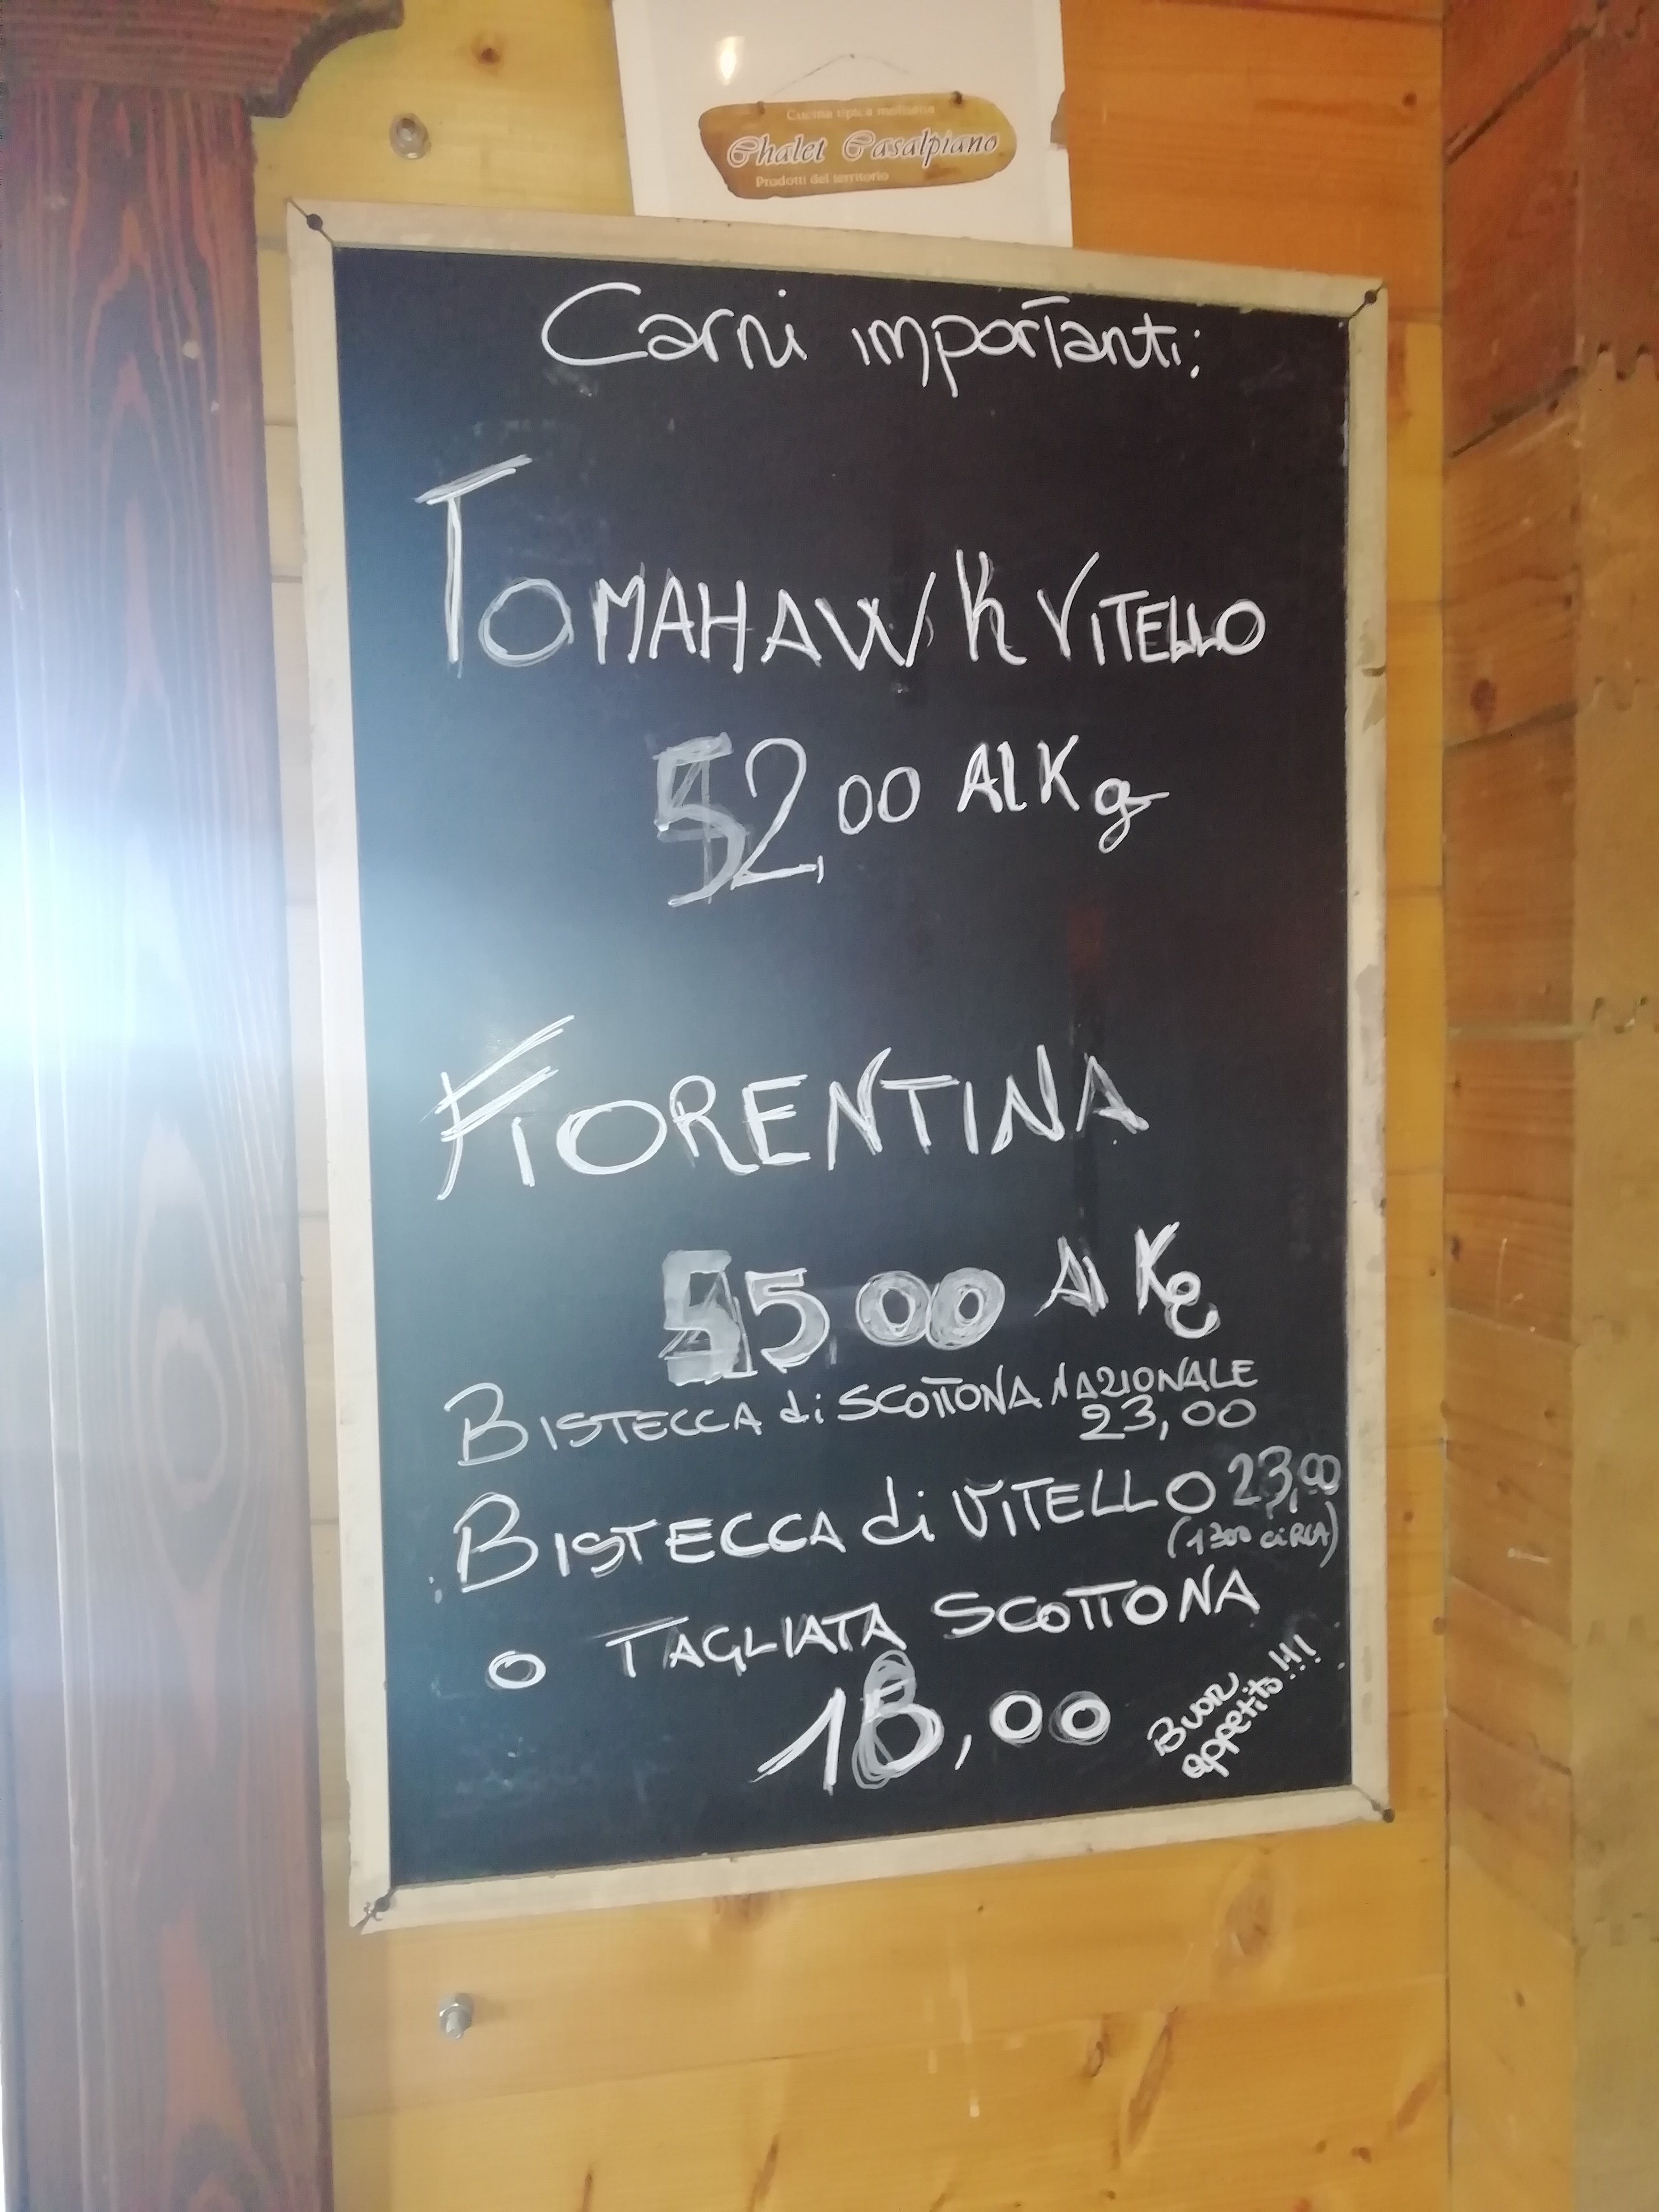 Cucina tipica molisana
Chalet Casalpiano
Prodotti del territorio
Carni importanti:
TOMAHAWK VITELLO
52,00 Al Kg
FIORENTINA
55,00 Al Kg
BISTECCA di SCOTTONA NAZIONALE
23,00
BISTECCA di VITELLO 23,00
(1300 CIRCA)
O TAGLIATA SCOTTONA
18,00
Buon
appetito!!!!